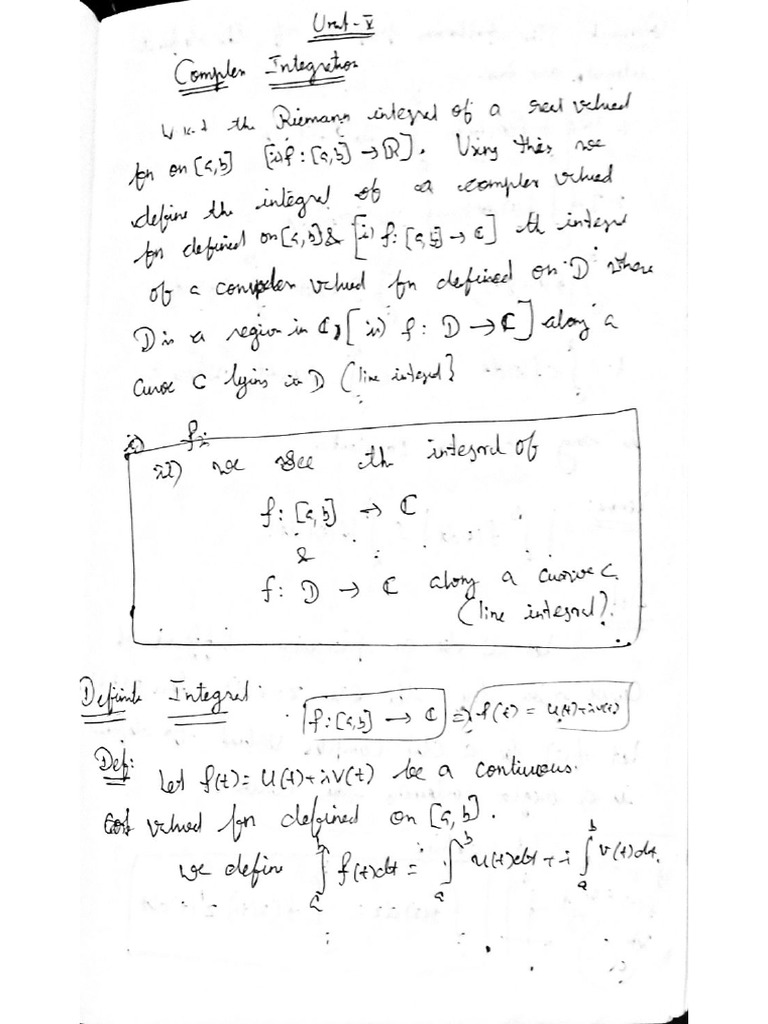 Unit-V
Complex Integration
W.k.t the Riemann integral of a real valued
fn on [a,b] [ie) f : [a,b] → ℝ]. Using this we
define the integral of a complex valued
fn defined on [a,b] & [ie) f: [a,b] → ℂ] th integral
of a complex valued fn defined on D where
D is a region in ℂ, [ie) f : D → ℂ] along a
curve C lying in D (line integral)
ie) we see the integral of
f: [a,b] → ℂ
&
f: D → ℂ along a curve C.
(line integral).
Definite Integral
f:[a,b] → ℂ ⇒ f(t) = u(t)+iv(t)
Def:
Let f(t) = u(t)+iv(t) be a continuous
valued fn defined on [a,b].
we define ∫_a^b f(t)dt = ∫_a^b u(t)dt + i ∫_a^b v(t)dt.